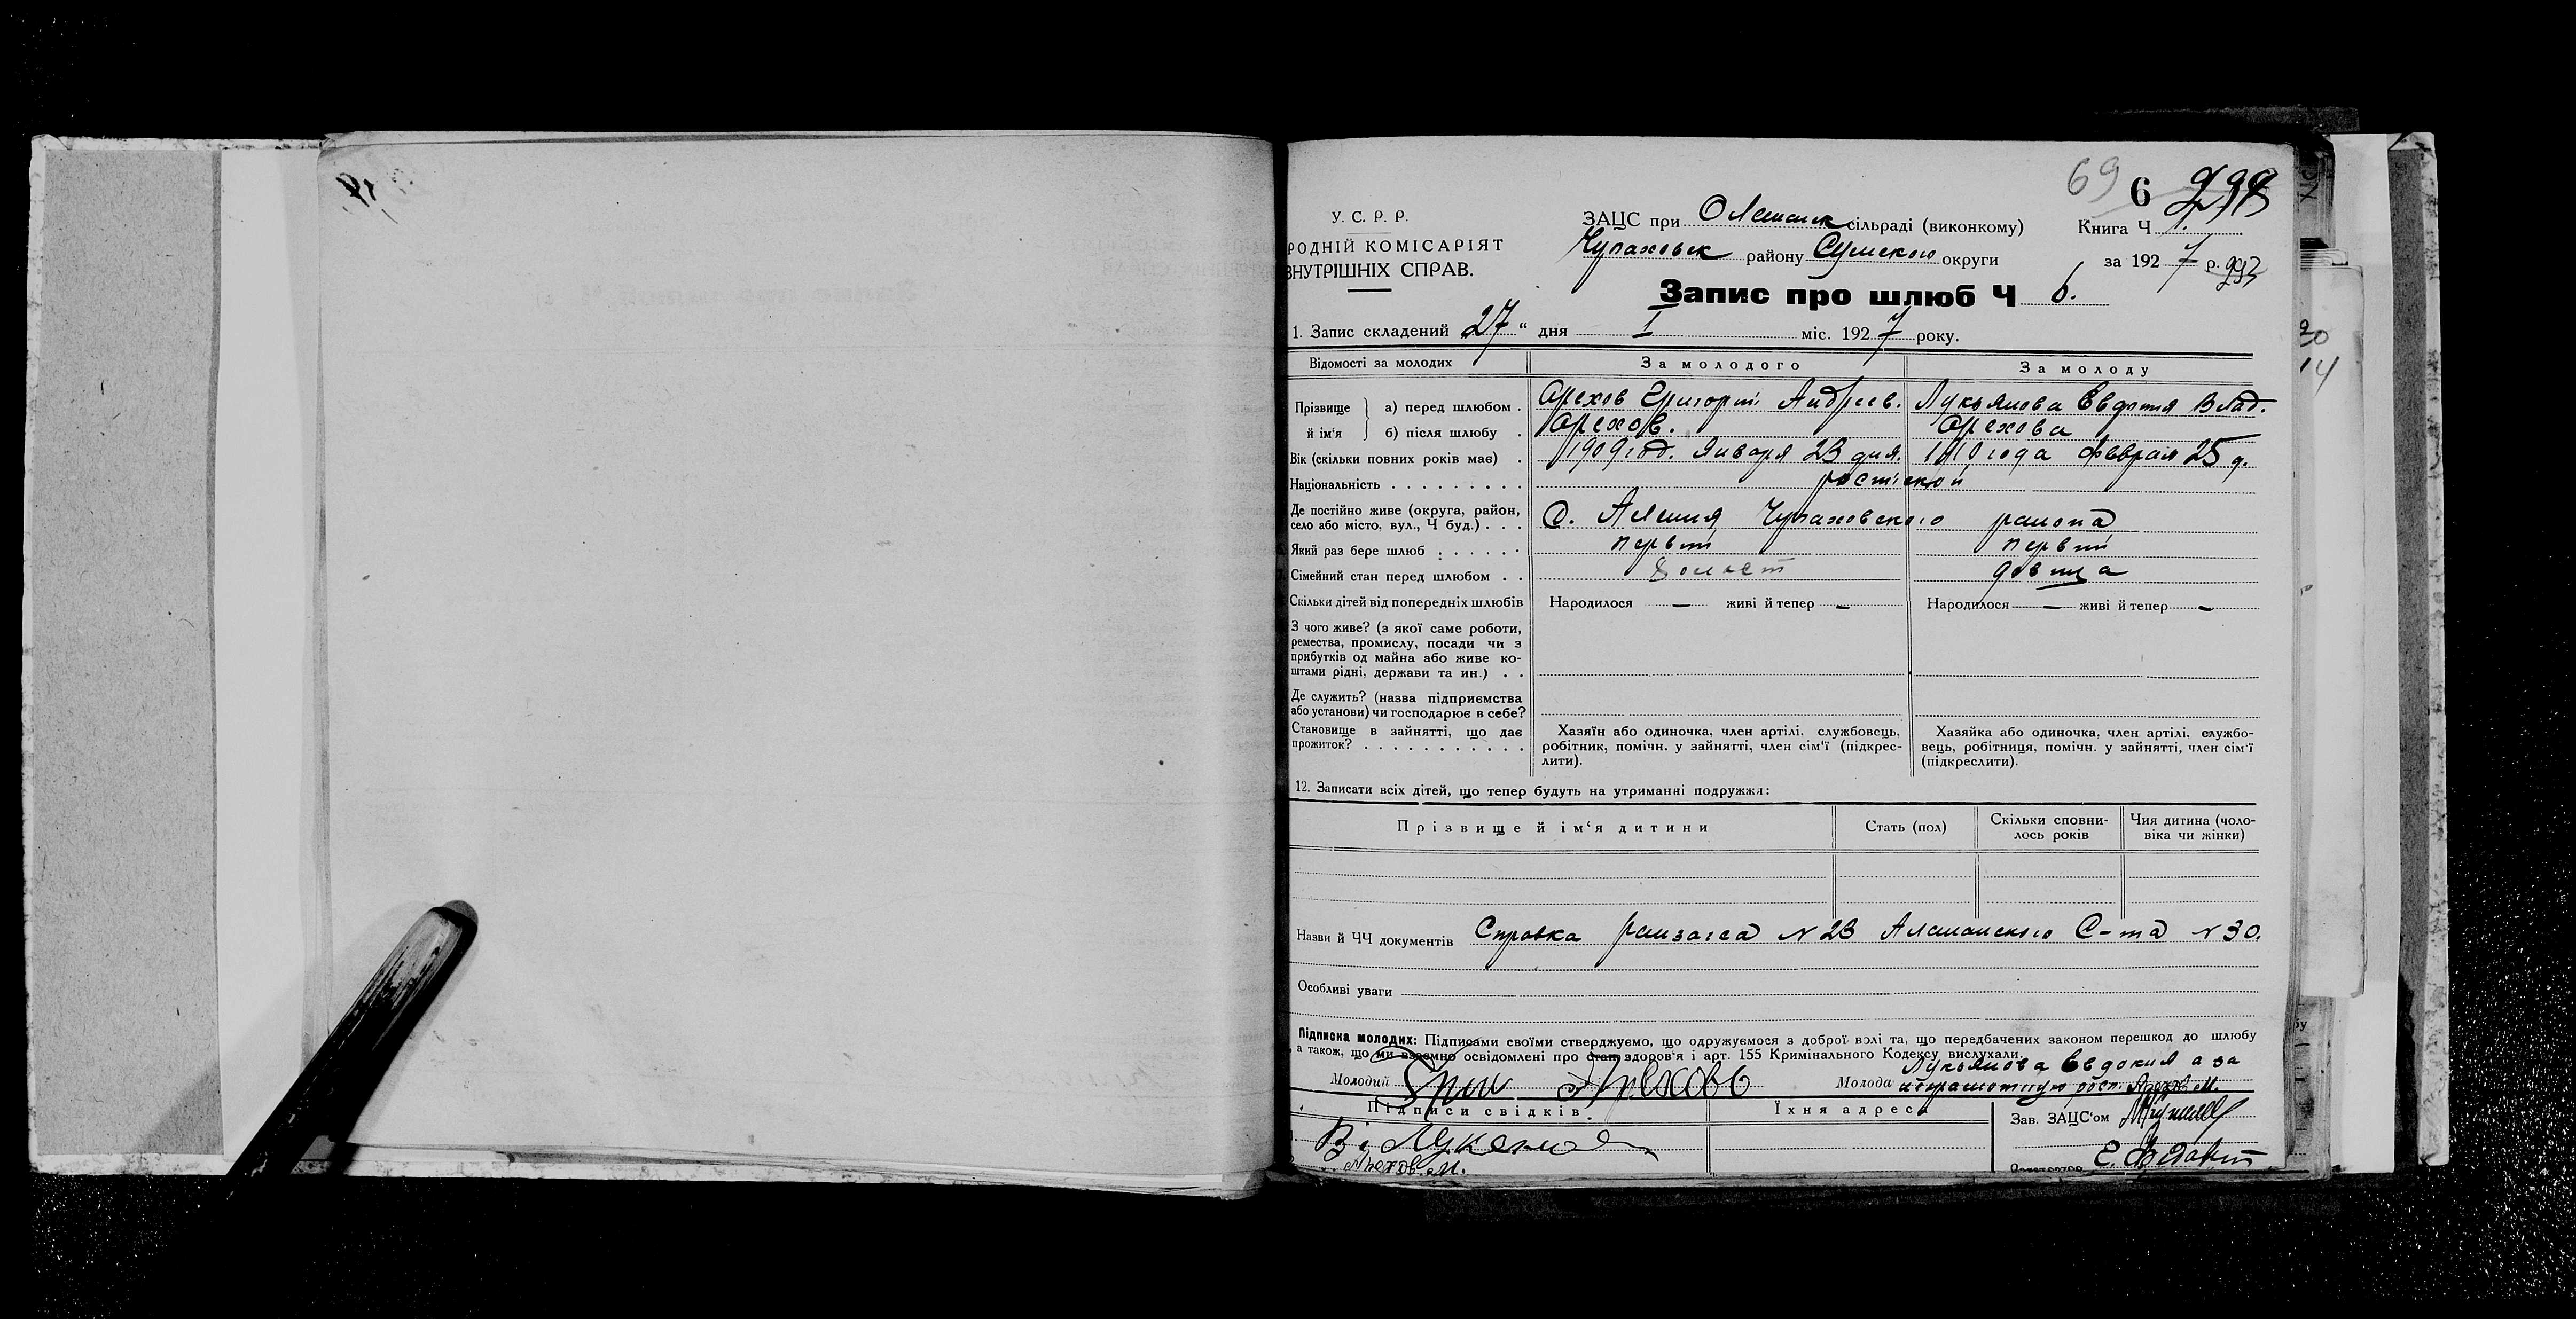 69 6
У. С. Р. Р.
РОДНІЙ КОМІСАРІЯТ
ВНУТРІШНІХ СПРАВ.
ЗАЦС при Олешанск сільраді (виконкому)
Книга Ч 1.
Чупаховск району Сумского округи
за 1927 р. 993
Запис про шлюб Ч 6.
1. Запис складений 27 " дня I міс. 1927 року.
Відомості за молодих За молодого За молоду
Прізвище й ім'я
а) перед шлюбом . Орехов Григорий Андреев. Лукьянова Евдокия Влад.
б) після шлюбу . Орехов. Орехова
Вік (скільки повних років має) . 1909 год. Января 23 дня. 1910 года февраля 25 д.
Національність . . . . . . . . .
Де постійно живе (округа, район,
село або місто, вул., Ч буд.) . . . С. Алешня Чупаховского района
Який раз бере шлюб . . . . . . первый первый
Сімейний стан перед шлюбом . . холост девица
Скільки дітей від попередніх шлюбів Народилося — живі й тепер — Народилося — живі й тепер —
З чого живе? (з якої саме роботи,
ремества, промислу, посади чи з
прибутків од майна або живе ко-
штами рідні, держави та ин.) . .
Де служить? (назва підприємства
або установи) чи господарює в себе?
Становище в зайнятті, що дає
прожиток? . . . . . . . . . . .
Хазяїн або одиночка, член артілі, службовець,
робітник, помічн. у зайнятті, член сім'ї (підкрес-
лити).
Хазяйка або одиночка, член артілі, службо-
вець, робітниця, помічн. у зайнятті, член сім'ї
(підкреслити).
12. Записати всіх дітей, що тепер будуть на утриманні подружжя:
Прізвище й ім'я дитини Стать (пол) Скільки сповни-
лось років Чия дитина (чоло-
віка чи жінки)
Назви й ЧЧ документів Справка райзагса N 23 Алешанского С-та N 30.
Особливі уваги
Підписка молодих: Підписами своїми стверджуємо, що одружуємося з доброї волі та, що передбачених законом перешкод до шлюбу
а також, що ми взаємно освідомлені про стан здоров'я і арт. 155 Кримінального Кодексу вислухали.
Молодий Григ Орехов
Молода Лукьянова Евдокия а за
неграмотную росп. Орехов М.
Підписи свідків. Їхня адреса
Зав. ЗАЦС'ом
В. Лукянов
Орехов М.